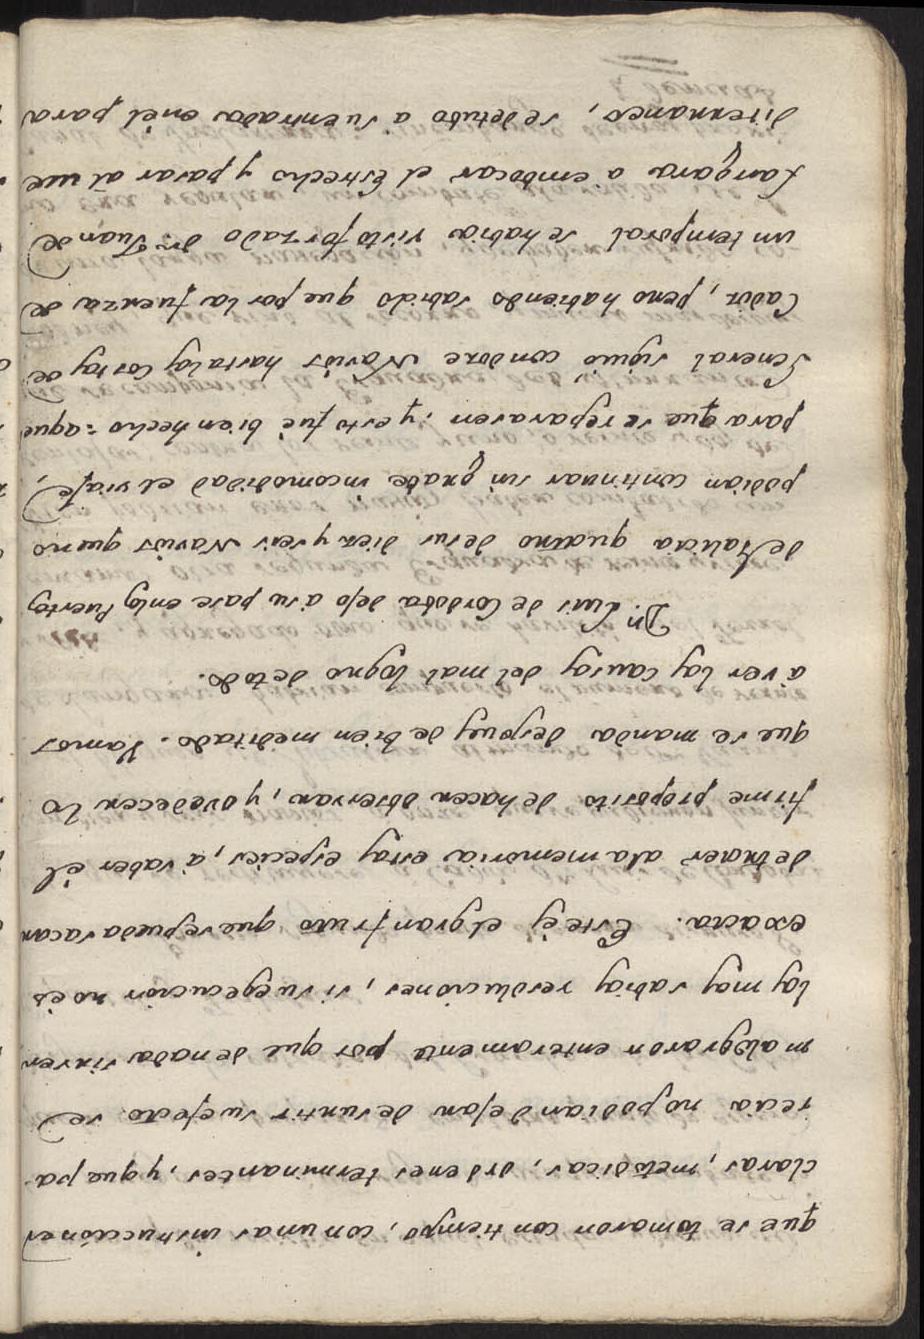 que se tomaron con tiempo, con unas instrucciones
claras, metodicas, ordenes terminantes, y que pa-
recia no podian dejar de surtir su efecto se
malograron enteramente por que de nada sirven
las mas sabias resoluciones, si su egecucion no ès
exacta. Este és el gran fruto que se pueda sacar
de traer a la memoria estas especies, à saber èl
firme proposito de hacer observar, y ovedecer lo
que se manda despues de bien meditado. Vamos
à ver las causas del mal logro de todo.
Dn. Luis de Cordova dejo à su pase en los Puertos
de Galicia quatro de sus diez y seis Navios que no
podian continuar sin grave incomodidad el viaje,
para que se reparasen; y esto fuè bien hecho: aquel
General siguiò con doze Navios hasta las Costas de
Cadiz, pero habiendo sabido que por la fuerza de
un temporal se habia visto forzado Dn. Juan de
Langara a embocar el Estrecho y pasar al Me-
diterraneo, se detubo a su entrada en èl para